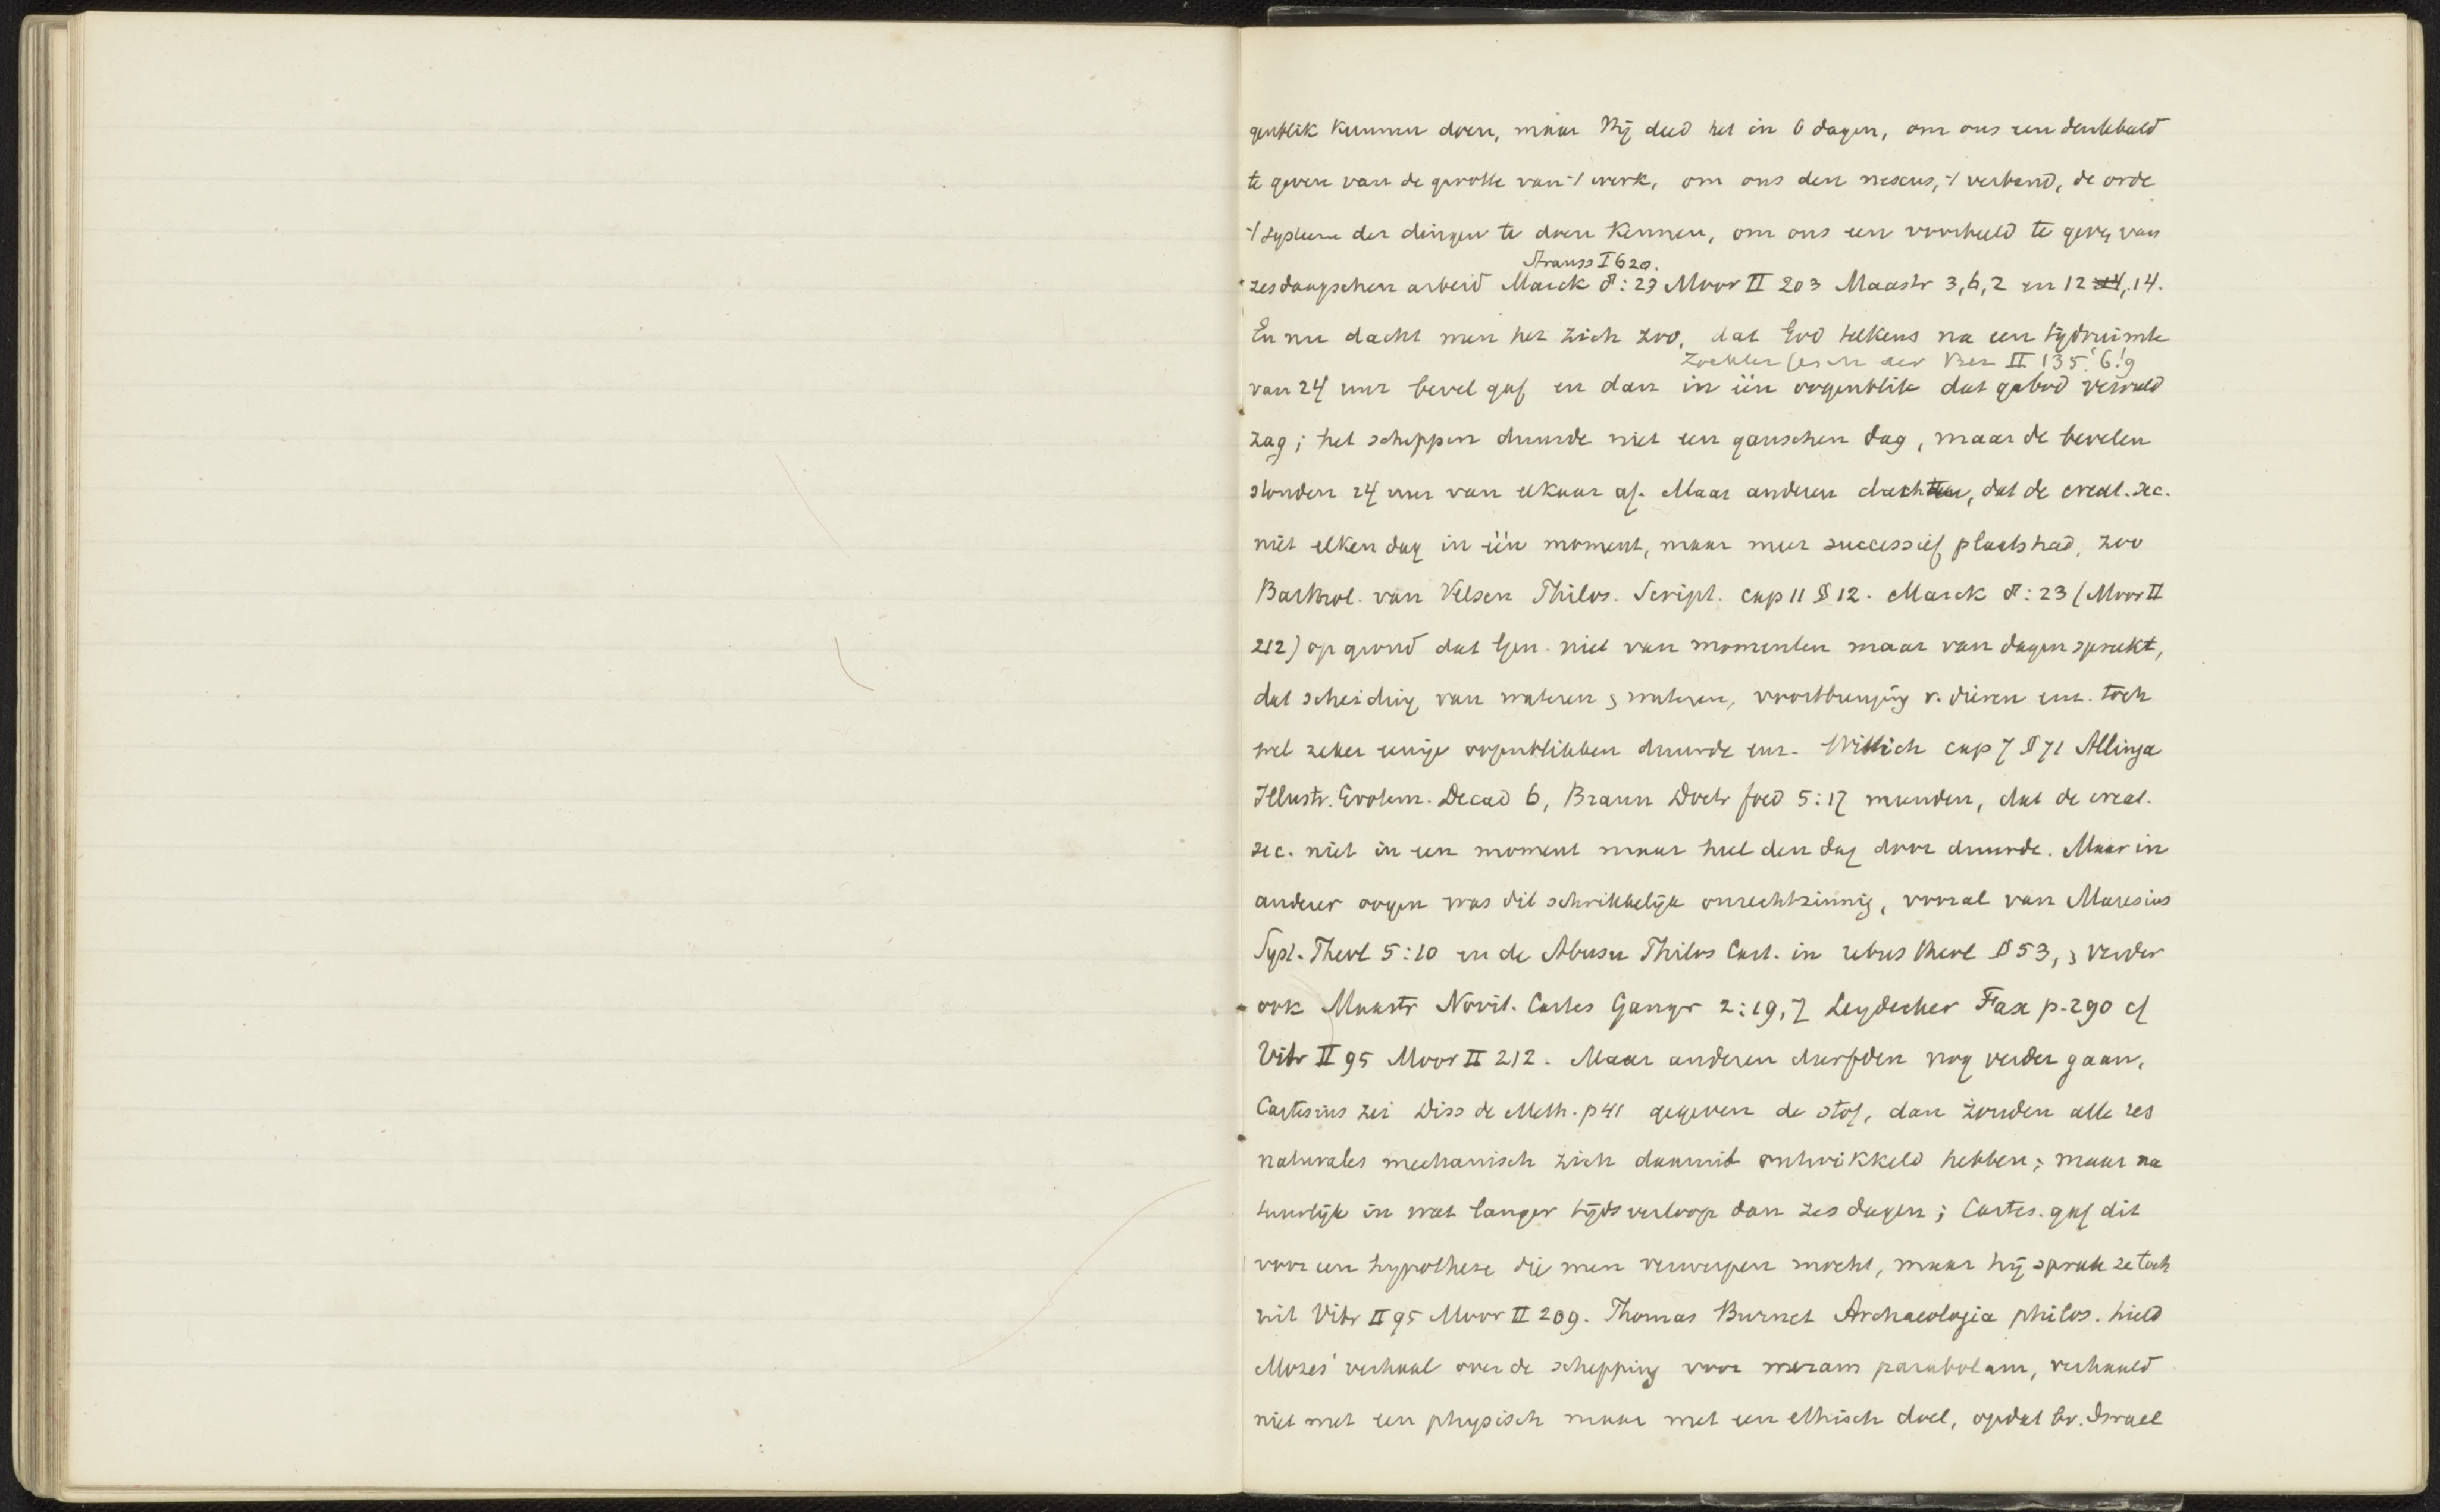 genblik kunnen doen, maar Hij deed het in 6 dagen, om ons een denkbeeld
te geven van de grootte van 't werk, om ons den nexus, 't verband, de orde
't systeem der dingen te doen kennen, om ons een voorbeeld te geven van
Strauss I 620.
zesdaagschen arbeid Marck 8:23 Moor II 203 Maastr 3,6,2 en 12 14, 14.
En nu dacht men het zich zoo, dat God telkens na een tijdruimte
Zoekler Gesch der Bez II 135! 6! 9
van 24 uur bevel gaf en dan in één oogenblik dat gebod vervuld
zag; het scheppen duurde niet een ganschen dag, maar de bevelen
stonden 24 uur van elkaar af. Maar anderen dachten, dat de creat. sec.
niet elken dag in één moment, maar meer successief plaats had, zoo
Barthol. van Velsen Philos. Script. cap 11 § 12. Marck 8:23 (Moor II
212) op grond dat Gen. niet van momenten maar van dagen spreekt,
dat scheiding van wateren & wateren, voortbrenging v. dieren enz. toch
wel zeker eenige oogenblikken duurde enz. Wittich cap 7 § 71 Allinga
Illustr. Erotem. Decad 6, Braun Doctr foed 5:17 meenden, dat de creat.
sec. niet in een moment maar heel den dag door duurde. Maar in
anderer oogen was dit schrikkelijk onrechtzinnig, vooral van Maresius
Syst. Theol 5:10 en de Abusu Philos Cart. in rebus theol § 53, & verder
ook Maastr Novit. Cartes Gangr 2:19,7 Leydecker Fax p. 290 cf
Vitr II 95 Moor II 212. Maar anderen durfden nog verder gaan.
Cartesius zei Diss de Meth. p 41 gegeven de stof, dan zouden alle res
naturales mechanisch zich daaruit ontwikkeld hebben; maar na
tuurlijk in wat langer tijdsverloop dan zes dagen; Cartes. gaf dit
voor een hypothese die men verwerpen mocht, maar hij sprak ze toch
uit Vitr II 95 Moor II 209. Thomas Burnet Archaeologia philos. hield
Mozes' verhaal over de schepping voor meram parabolam, verhaald
niet met een physisch maar met een ethisch doel, opdat bv. Israel